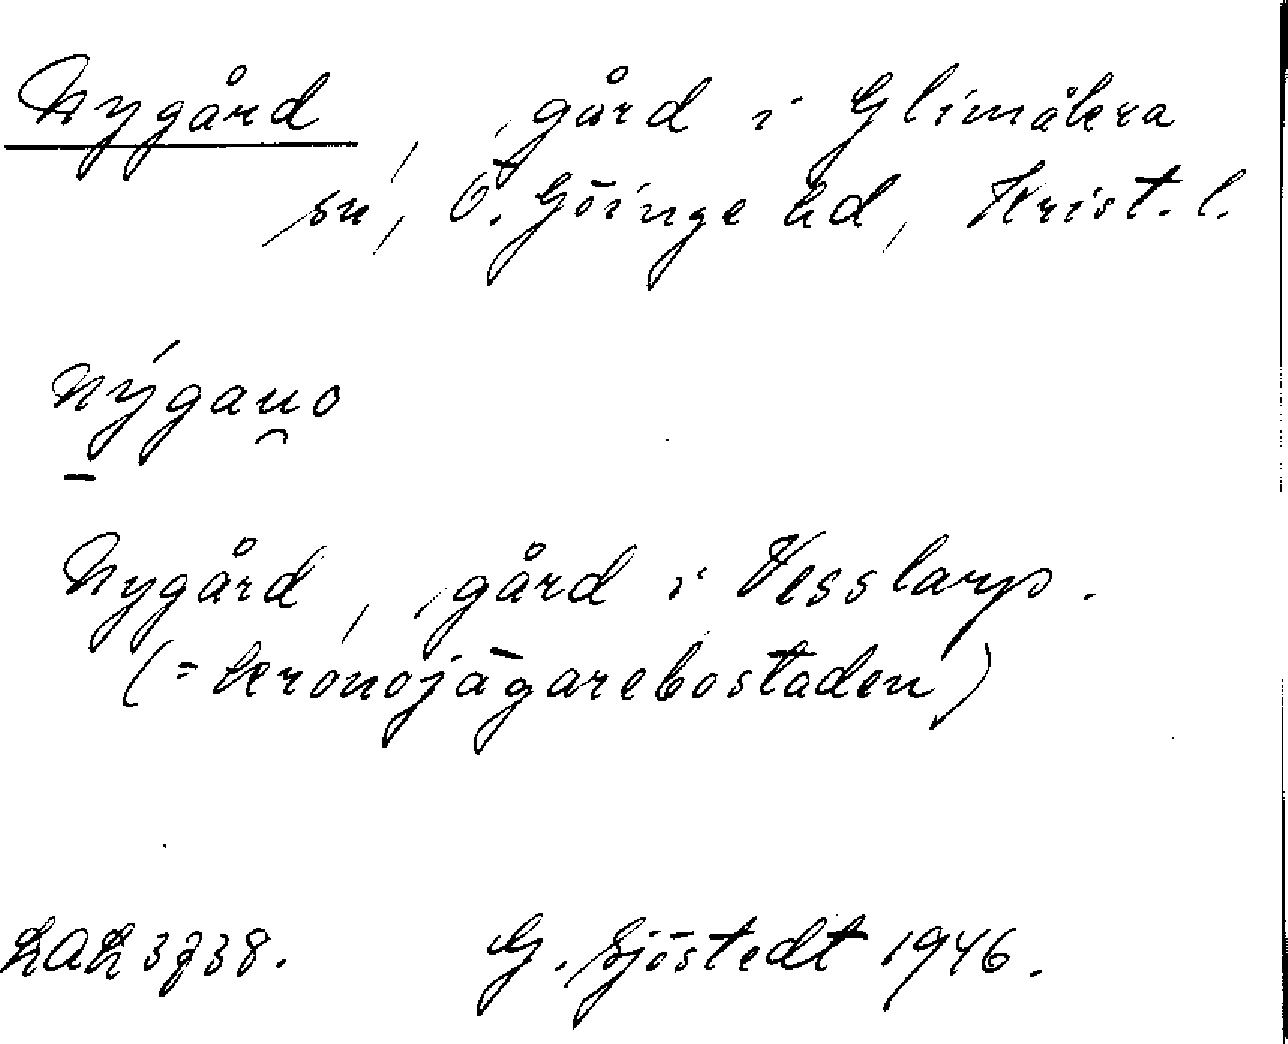 Nygård, gård i Glimåkra
sn, Ö. Göinge hd, Krist. l.
nýgau̯o
Nygård, gård i Vesslarp.
(= kronojägarebostaden)
LAL 3738.  G. Sjöstedt 1946.